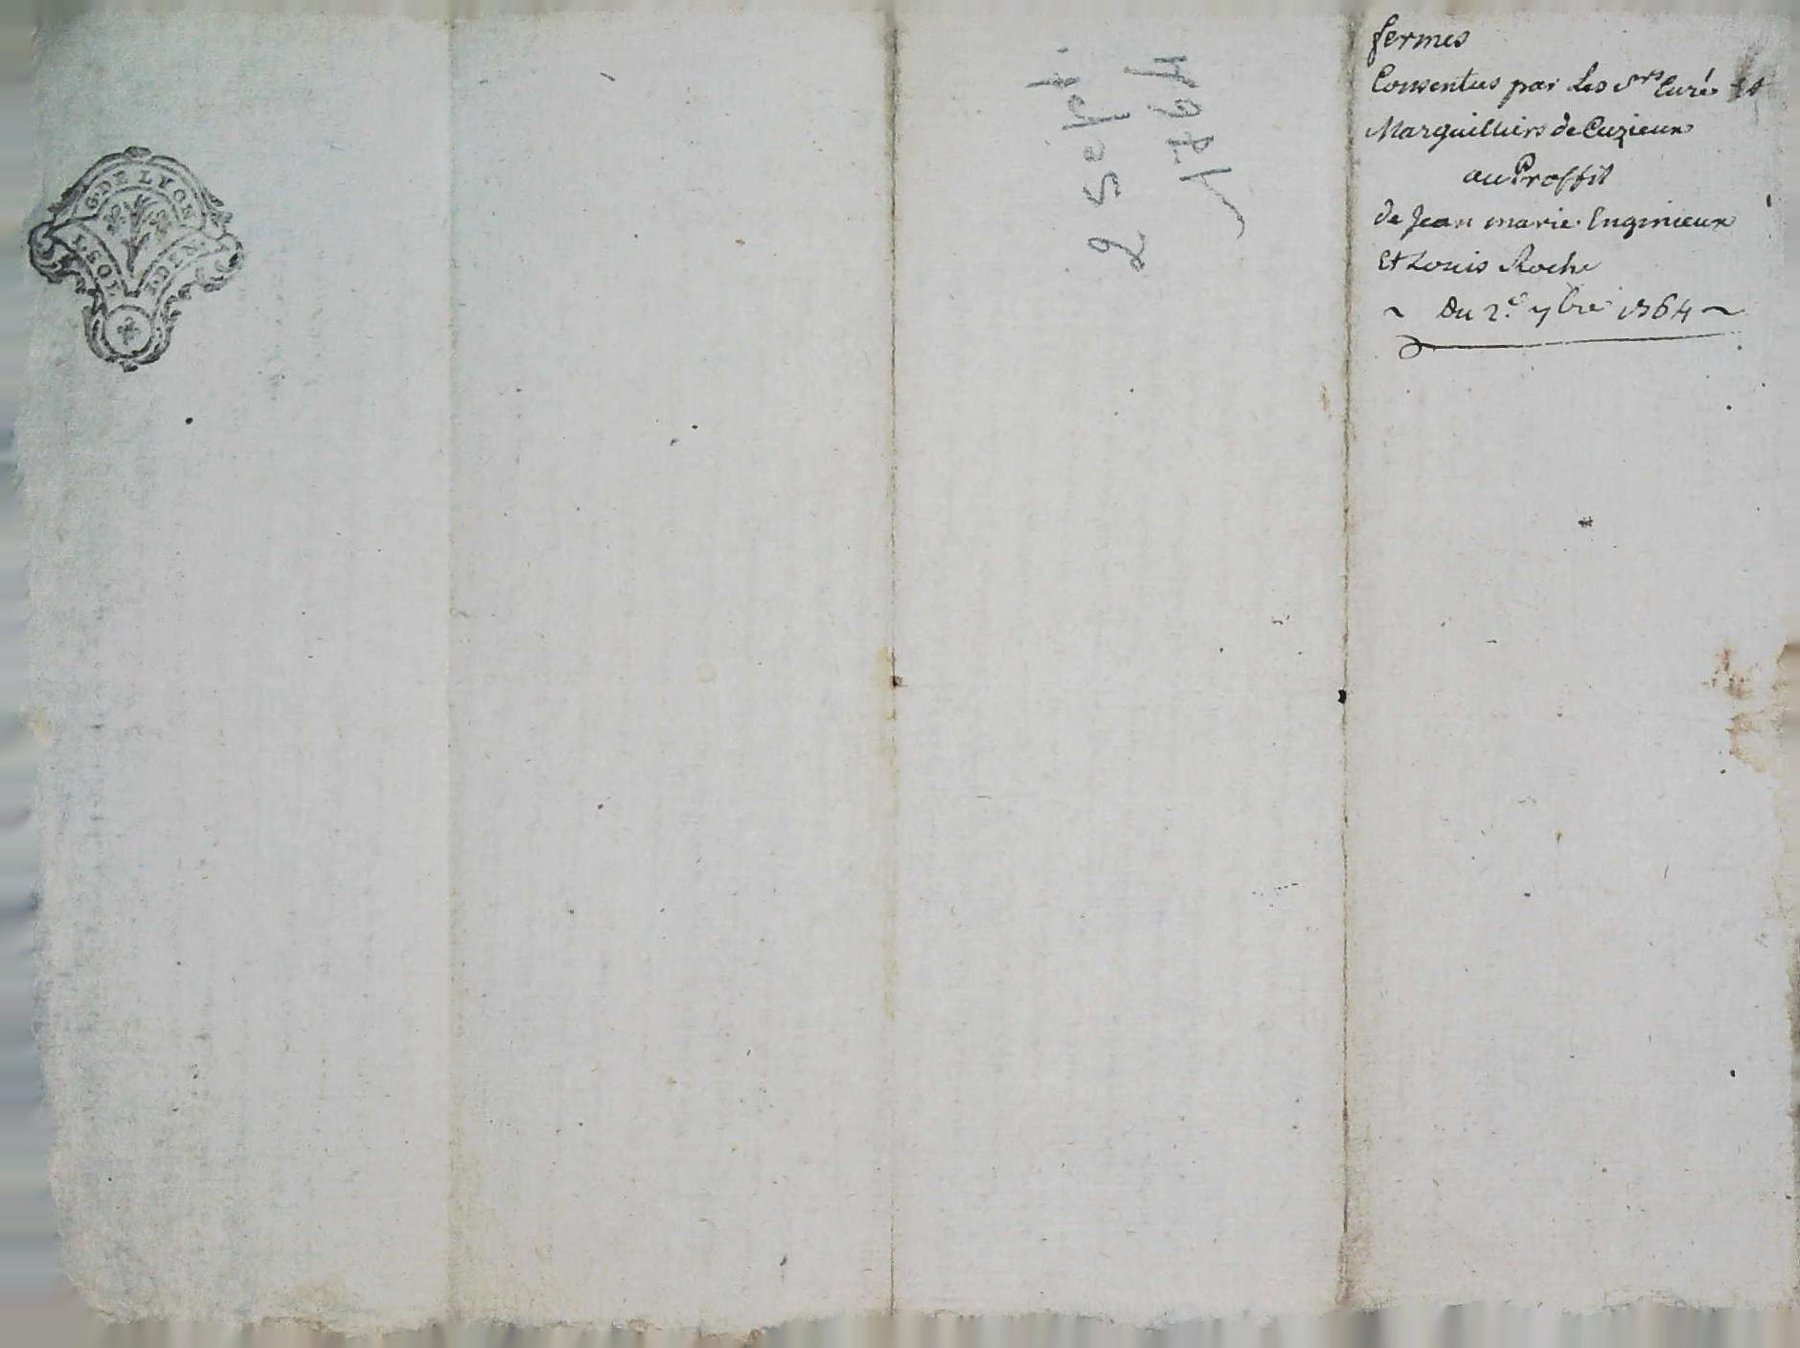 G. DE LYON
1. SOL
8 DEN.
2 sept.
1764
fermes
Consentües par Les Srs Curé Et
Marguilliers de Cuzieux
au Proffit
de Jean marie Enginieux
Et Louis Roche
~ Du 2.e 7bre 1764 ~